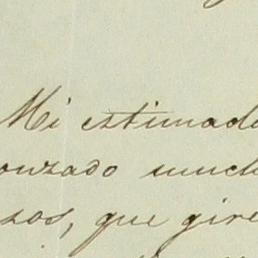 Mi estimado
onzado much
sos, que gire